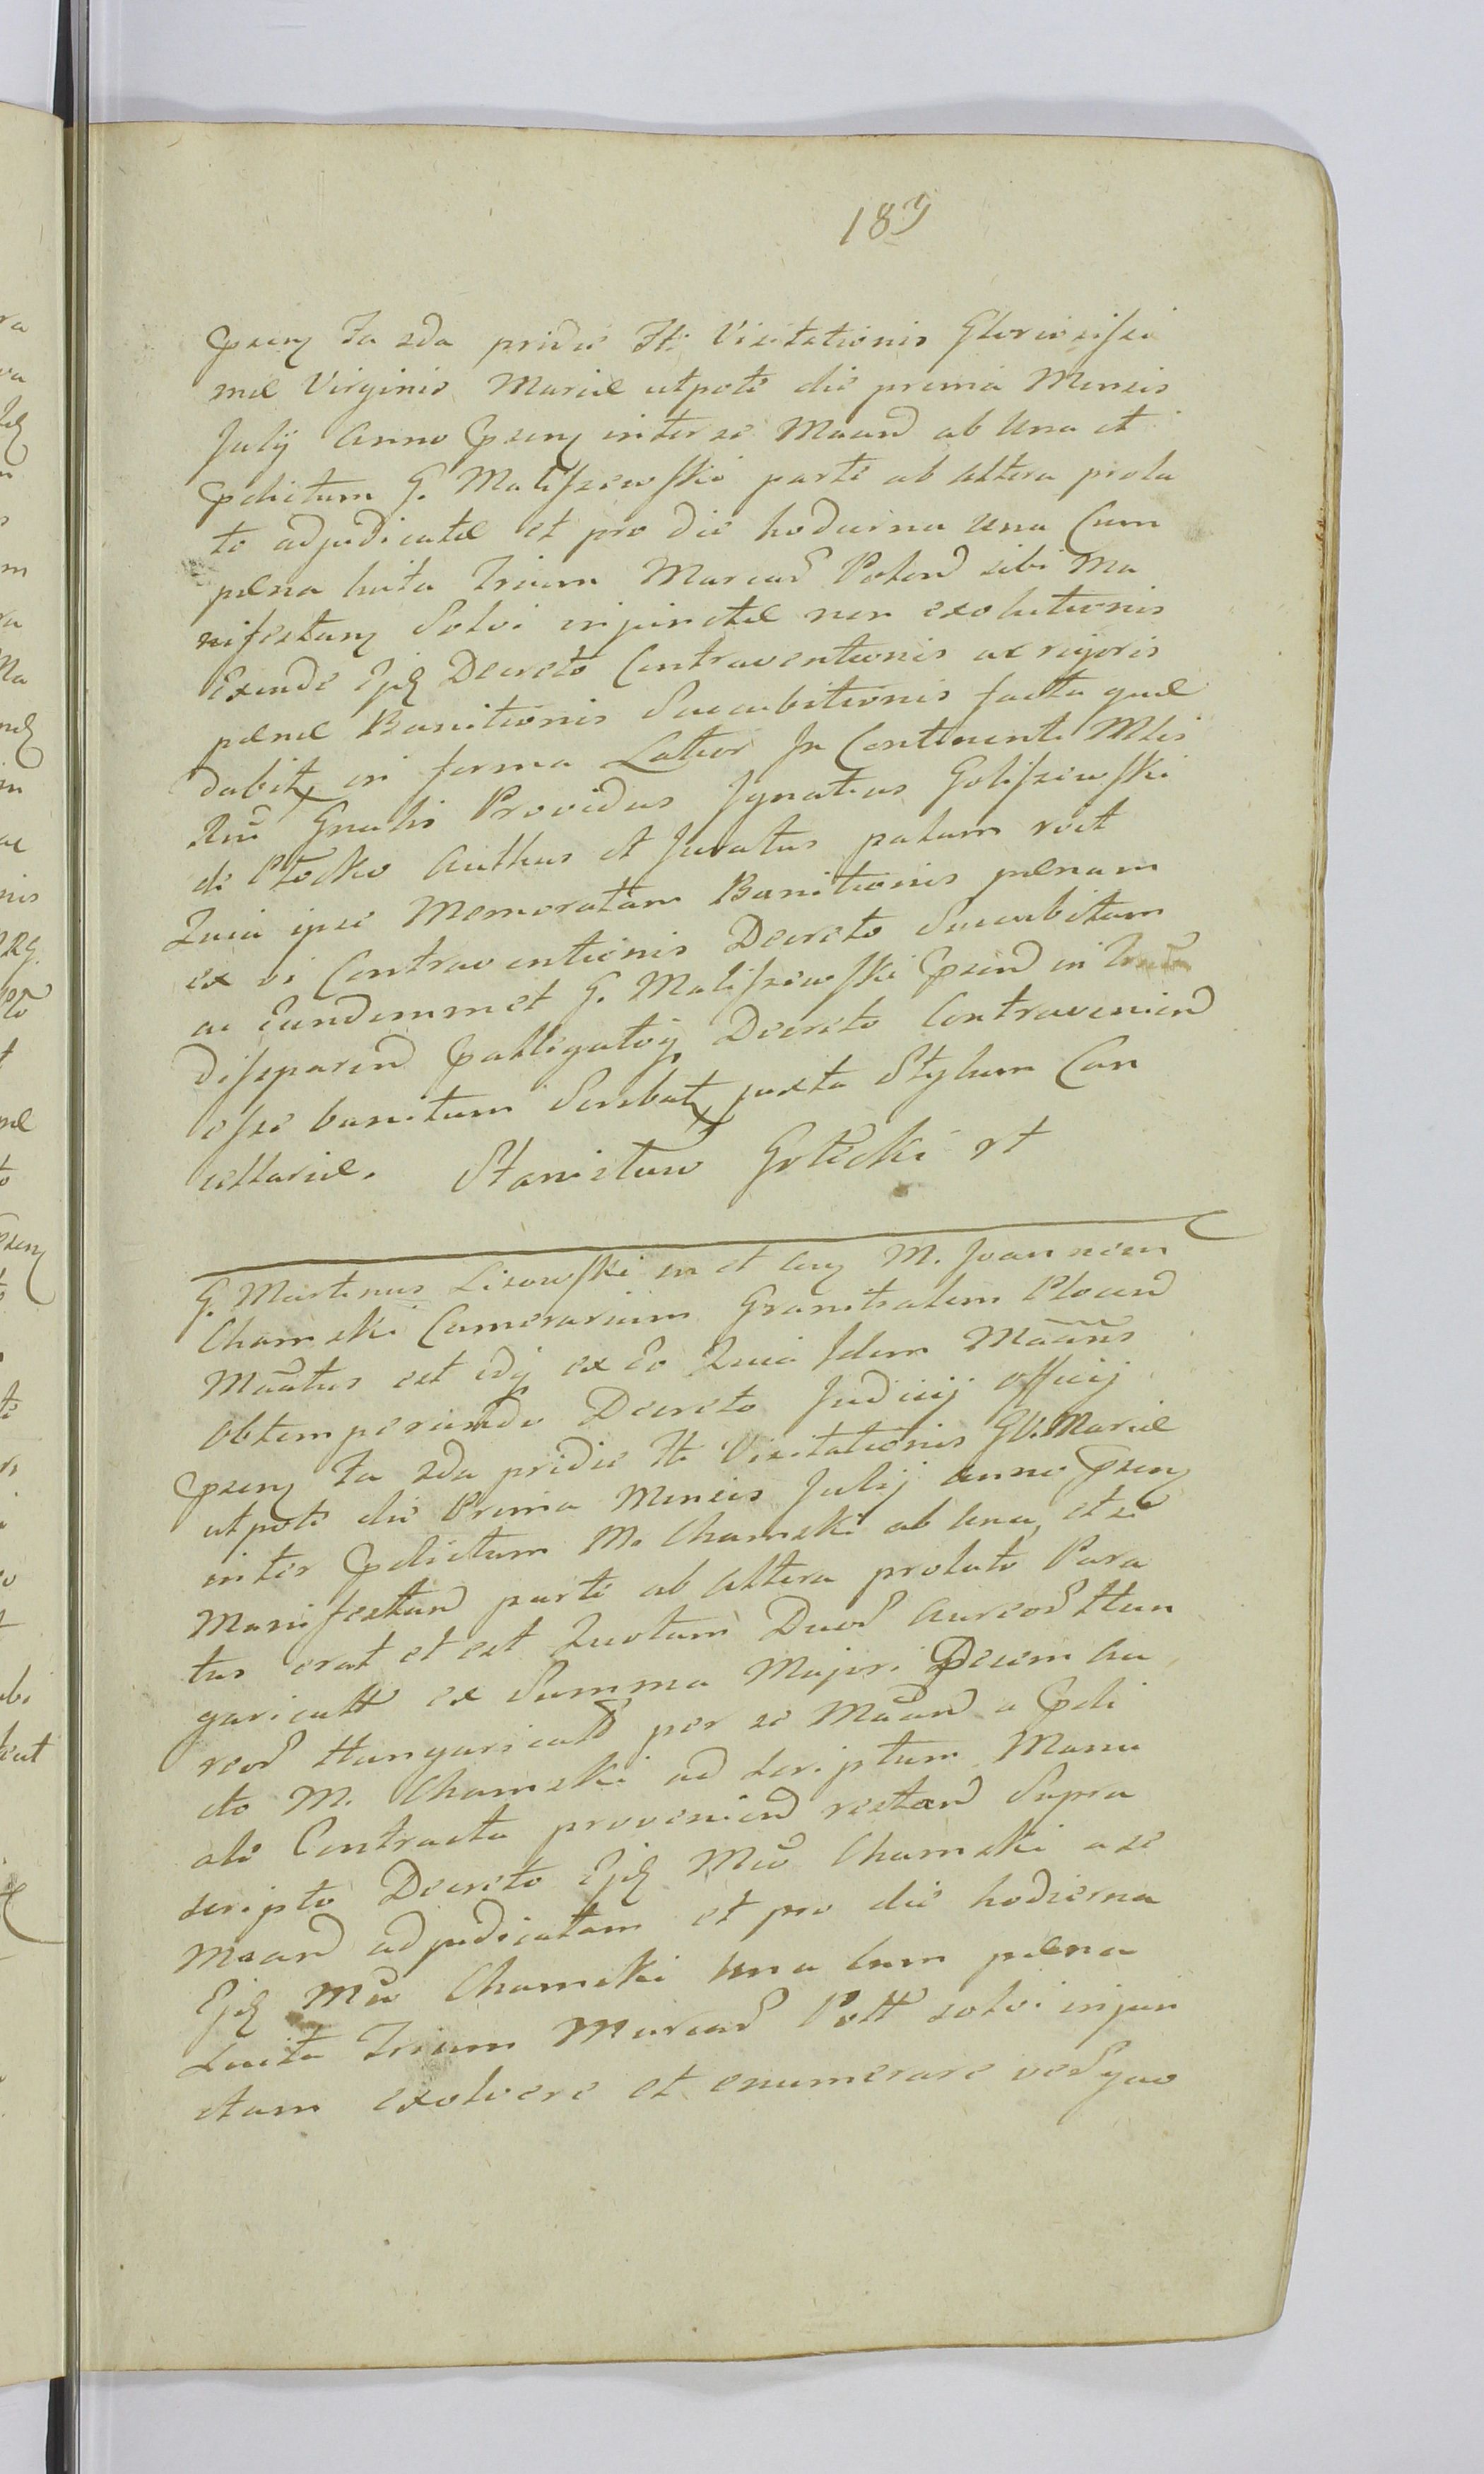 189
Prn̄ Fa 2da pridie Fti Visitationis Gloriosissi
mæ Virginis Mariæ utpote die prima Mensis
Julij Anno Prn̄ inter se Maand ab una et
Pdictum G. Maliszewski parte ab altera prola
to adjudicatæ et pro die hodierna una Cum
pæna luita Trium Marcaȓ Polonȓ sibi Ma
nifestanȓ Solvi injunctæ non exolutionis
Exinde Ejq Decreto Contraventionis ac rigoris
pænæ Banitionis Succubitionis facta quæ
dabitȓ in forma Latior In Continenti Mlis
Rni Gnalis Providus Ignatius Goliszewski
de Płocko Authus et Juratus palam rvit
Quia ipse Memoratam Banitionis pænam
ex vi Contraventionis Decreto Succubitam
ac Eundemmet G. Maliszewski Prnd in
disparenȓ Palligatoȓ Decreto Contraveniend
esse banitum Scribatȓ juxta Stylum Can
cellariæ. Stanisław Gołecki rt
G. Martinus Lisowski in et cnȓ M. Joannem
Chamski Camerarium Granitialem Plocenȓ
Mãatus est idq ex Eo Quia Idem Mããns
obtemperando Decreto Judicij officij
Prn̄ Fa 2da pridie Fti Visitationis GV. Mariæ
utpote die Prima Mensis Julij Anno Prn̄
inter Pdictum M. Chamski ab una, et se
Manifestanȓ parte ab altera prolato Para
tus erat et est Quotam Duoȓ Aureoȓ Hun
garicall ex Summa Majori Decem Au
reoȓ Hungaricalȓ per se Maand a Pdi
cto M. Chamski ad scriptum Manu
ale Contracta provenienȓ restanȓ Supra
scripto Decreto Ejq Mco Chamski a se
Maand adjudicatam et pro die hodierna
Ejq Mco Chamski una cum pæna
Luita Trium Marcaȓ Poll solvi injun
ctam exolvere et enumerare